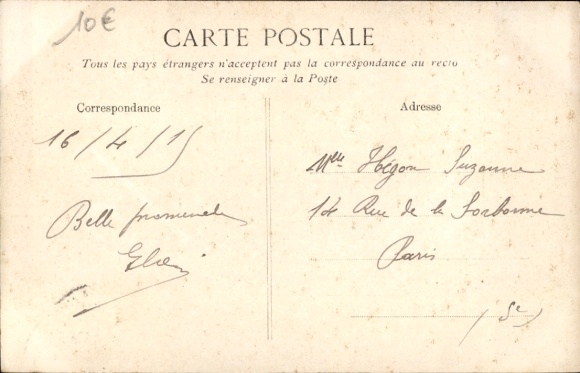 10€
CARTE POSTALE
Tous les pays étrangers n'acceptent pas la correspondance au recto
Se renseigner à la Poste
Correspondance
16/4/15
Belle promenade
Adresse
Mlle Hégon Suzanne
14 Rue de la Sorbonne
Paris
(5e)